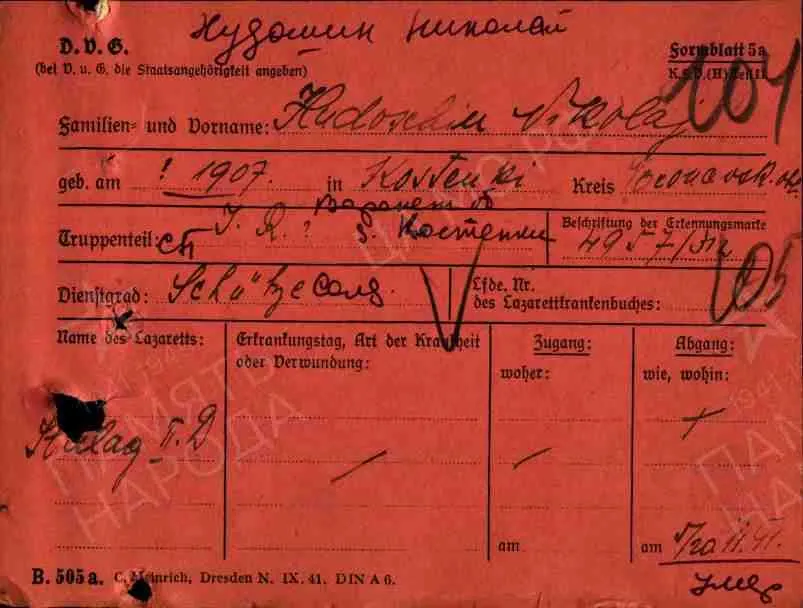 Худошин Николай
D.V.G. Formblatt 5a
(bei V. u. G. die Staatsangehörigkeit angeben) K.S.V.(H) Teil II
104
Familien- und Vorname: Hudoschin Nikolaj
geb. am ! 1907. in Kostenki Kreis
Воронеж об
Truppenteil: сп J. R. ? з. Костенки Beschriftung der Erkennungsmarke
Dienstgrad: Schütze солд. Lfde. Nr.
des Lazarettkrankenbuches: 105
Name des Lazaretts: Erkrankungstag, Art der Krankheit Zugang: Abgang:
oder Verwundung: woher: wie, wohin:
Stalag II. D
am am 11. 41.
умер
B. 505a. C. Heinrich, Dresden N. IX. 41. DIN A 6.
ПАМЯТЬ
НАРОДА